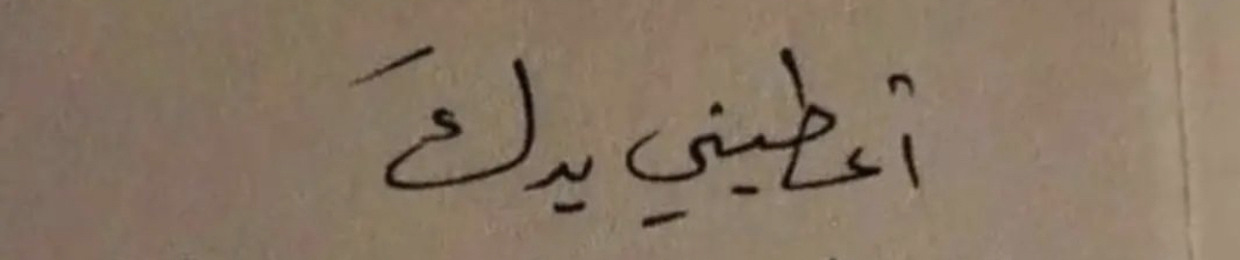 أعطيني يدكَ